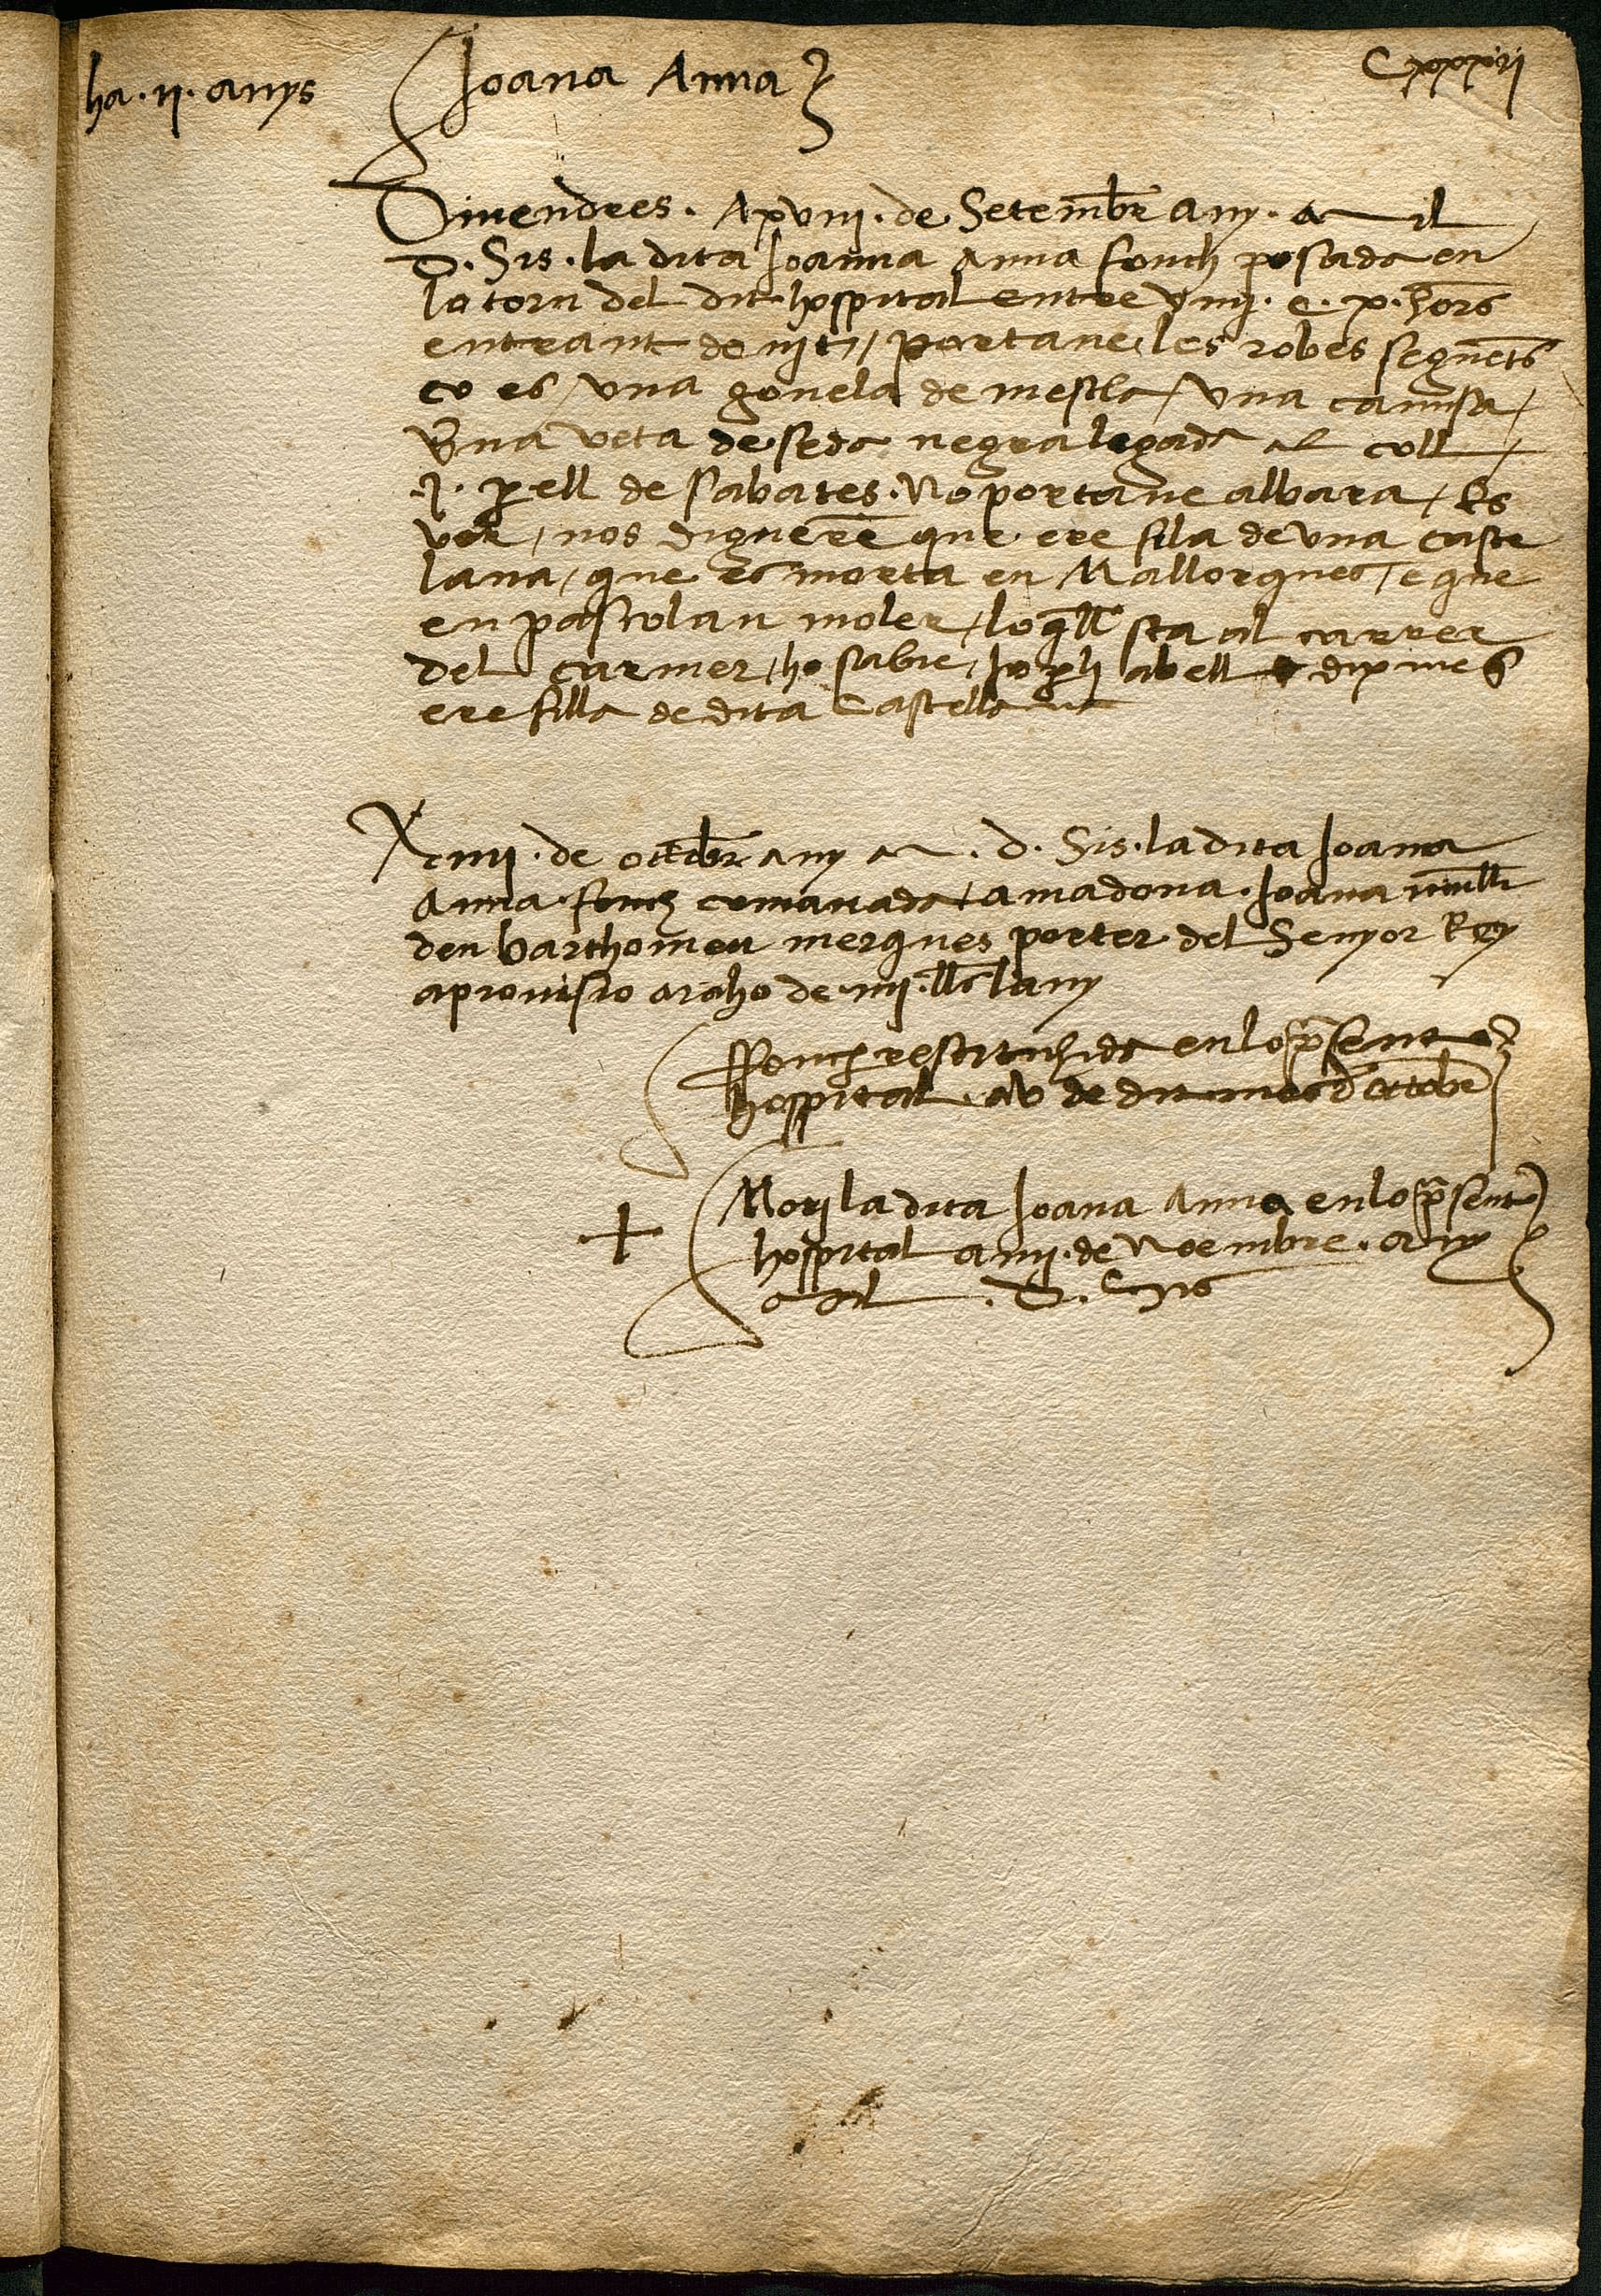 ha .ii. anys
Joana Anna
Cxxxiii
Divendres . A xviii . de Setembr any . M il
D . Sis . la dita Joanna Anna fonch posada en
lo torn del dit hospital entre viiij . e . x . hors
entrant de nit / portave les robes seguets
co es / una gonela de mescla / una camisa /
Una veta de seda negra legada al coll /
.j. pell de sabates . No portave albara / Es
ver / nos digueren que ere fila de una caste
lana / que es morta en Mallorques / e que
en pascolau moler / lo qll sta al carrer
del carmer / ho sabie / abell dix me
ere filla de dita Castellana
A iiij . de octebr any M . d . Sis . la dita Joana
Anna fonch comanada a madona . Joana mull
den barthomeu merques porter del Senyor Rey
a provisio a raho de iiij . lls lany
Fonch restituhida en lo psent
hospital . a v de dit mes d octobre
+ Mori la dita Joana Anna en lo psent
hospital a iiij . de Noembre . any
Mil . D . Sis